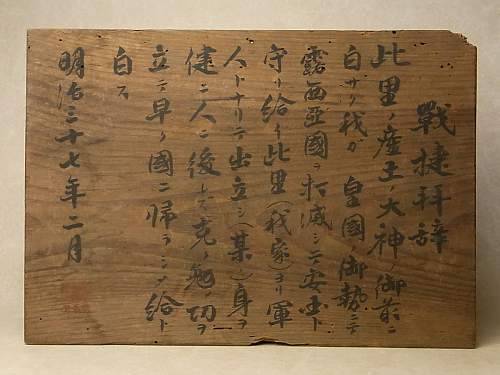 戰捷拜辞
此里ノ産土ノ大神ノ御前ニ
白サク我ガ 皇國ノ御勢ニテ
露西亞國ヲ打滅シニテ安出ト
守リ給イ此里(我家)ヨリ軍
人トナリテ出立シ(某)身ヲ
健ニ人ニ後レズ克ク勉メ切ヲ
立テ早ク國ニ帰ラシメ給ト
白ス
明治三十七年二月